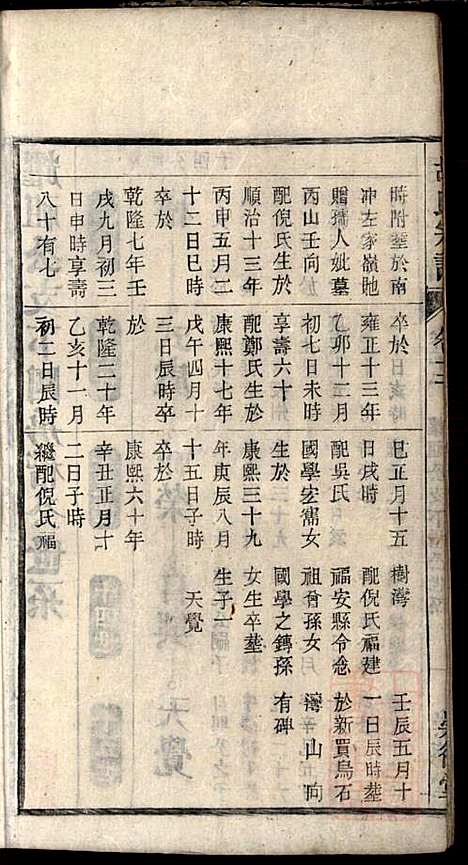 氏宗譜
卷三
時附塟於南
冲左家嶺虵
贈孺人妣墓
丙山壬向
配倪氏生於
順治十三年
丙申五月二
十二日巳時
卒於
乾隆七年壬
戌九月初三
日申時享壽
八十有七
卒於
雍正十三年
乙卯十二月
初七日未時
享壽六十
配鄭氏生於
康熙十七年
戊午四月十
三日辰時卒
於
乾隆二十年
乙亥十一月
初二日辰時
巳正月十五
日戌時
配吳氏
國學宏儁女
生於
康熙三十九
年庚辰八月
十五日子時
卒於
康熙六十年
辛丑正月十
二日子時
繼配倪氏福
樹灣
配倪氏福建
福安縣令念
祖曾孫女
國學之鏄孫
女生卒塟
生子一
天覺
壬辰五月十
一日辰時塟
於新買烏石
灣山向
有碑